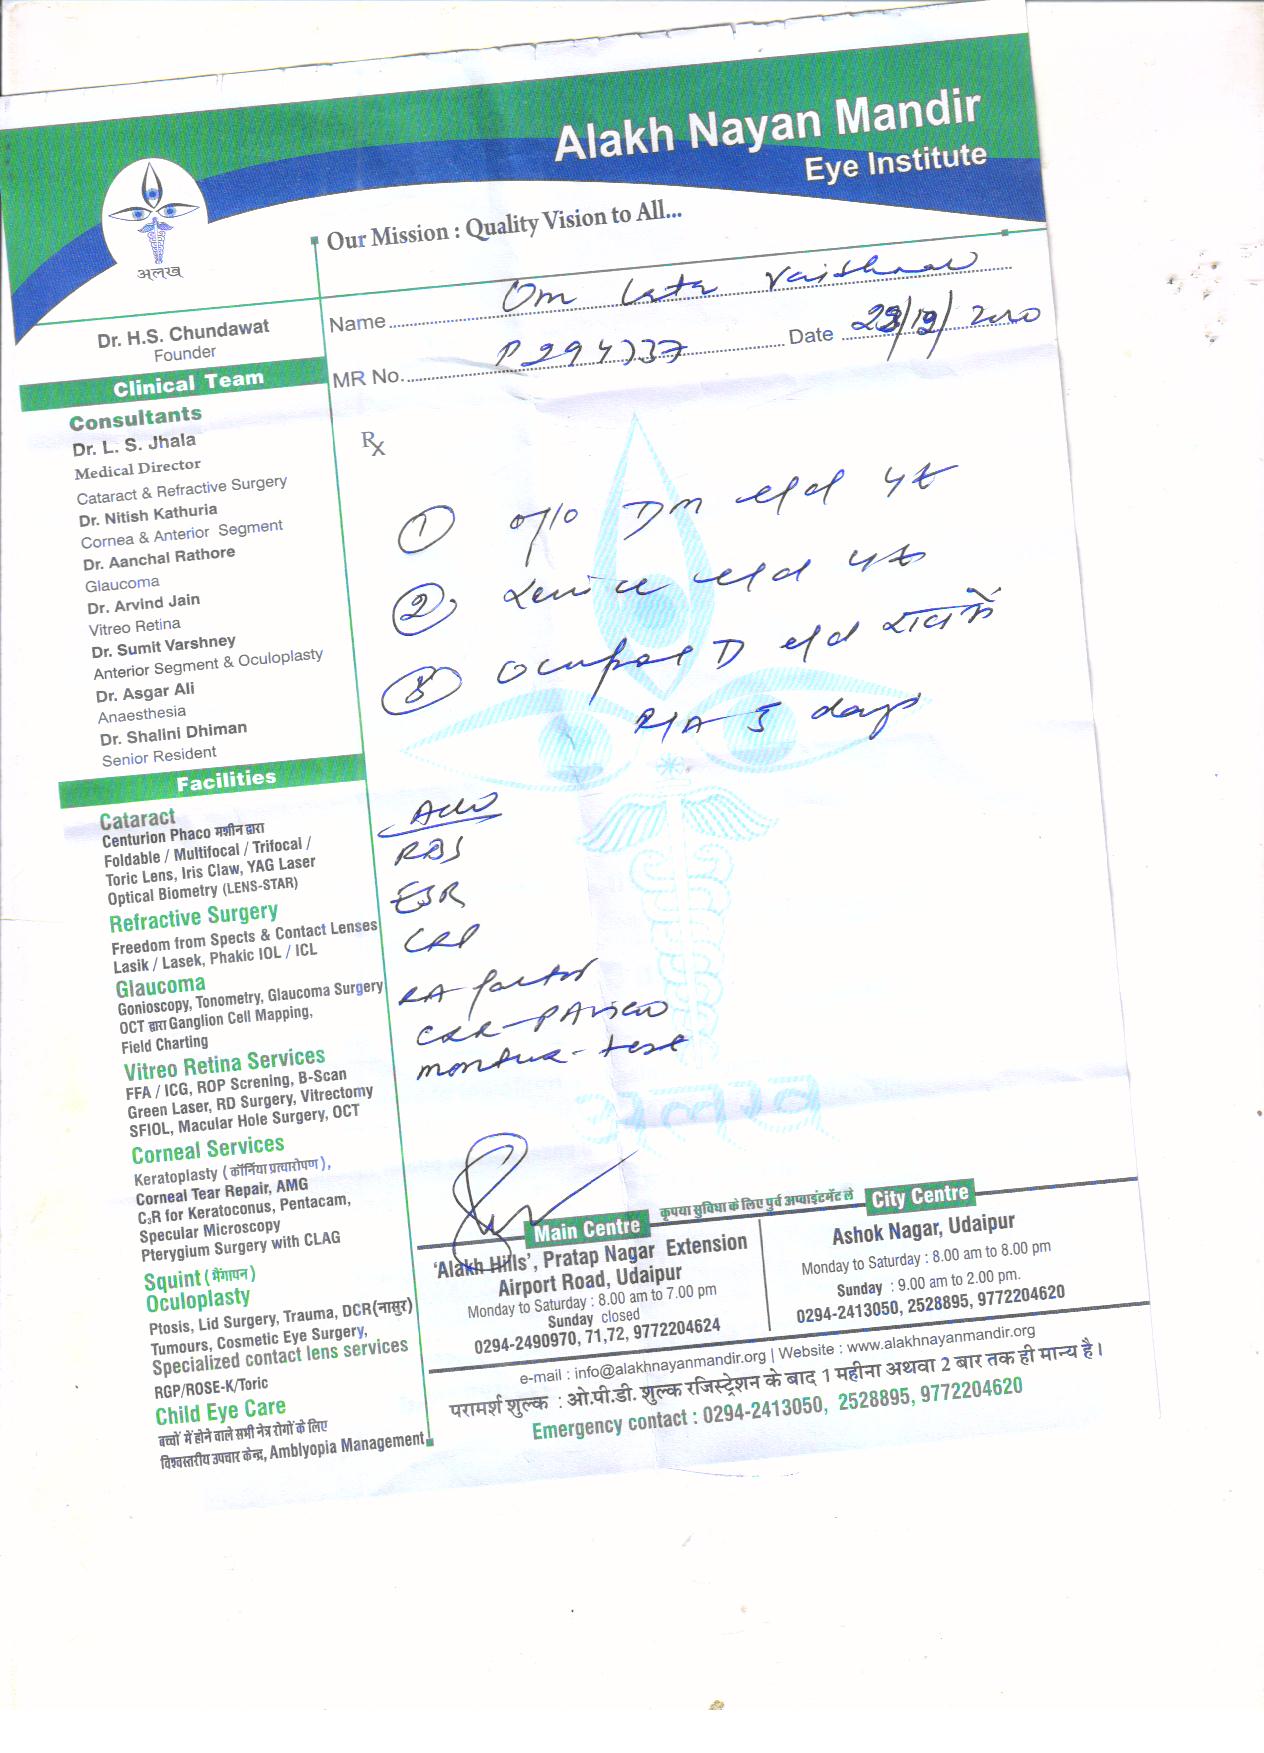 Alakh Nayan Mandir
Eye Institute
अलख
Our Mission : Quality Vision to All...
Name Om Lata Vaishnav
MR No. P294737
Date 23/12/2020
Dr. H.S. Chundawat
Founder
Clinical Team
Consultants
Dr. L. S. Jhala
Medical Director
Cataract & Refractive Surgery
Dr. Nitish Kathuria
Cornea & Anterior Segment
Dr. Aanchal Rathore
Glaucoma
Dr. Arvind Jain
Vitreo Retina
Dr. Sumit Varshney
Anterior Segment & Oculoplasty
Dr. Asgar Ali
Anaesthesia
Dr. Shalini Dhiman
Senior Resident
Facilities
Cataract
Centurion Phaco मशीन द्वारा
Foldable / Multifocal / Trifocal /
Toric Lens, Iris Claw, YAG Laser
Optical Biometry (LENS-STAR)
Refractive Surgery
Freedom from Spects & Contact Lenses
Lasik / Lasek, Phakic IOL / ICL
Glaucoma
Gonioscopy, Tonometry, Glaucoma Surgery
OCT द्वारा Ganglion Cell Mapping,
Field Charting
Vitreo Retina Services
FFA / ICG, ROP Screning, B-Scan
Green Laser, RD Surgery, Vitrectomy
SFIOL, Macular Hole Surgery, OCT
Corneal Services
Keratoplasty ( कॉर्निया प्रत्यारोपण ),
Corneal Tear Repair, AMG
C₃R for Keratoconus, Pentacam,
Specular Microscopy
Pterygium Surgery with CLAG
Squint ( भैंगापन )
Oculoplasty
Ptosis, Lid Surgery, Trauma, DCR(नासुर)
Tumours, Cosmetic Eye Surgery,
Specialized contact lens services
RGP/ROSE-K/Toric
Child Eye Care
बच्चों में होने वाले सभी नेत्र रोगों के लिए
विश्वस्तरीय उपचार केन्द्र, Amblyopia Management
Rx
① DM e/d
② e/d
③ D e/d
R/A 5 days
Adv
RBS
ESR
CRP
RA factor
CXR - PA view
montux - test
अलख
कृपया सुविधा के लिए पुर्व अप्वाइंटमेंट ले
Main Centre
'Alakh Hills', Pratap Nagar Extension
Airport Road, Udaipur
Monday to Saturday : 8.00 am to 7.00 pm
Sunday closed
0294-2490970, 71,72, 9772204624
City Centre
Ashok Nagar, Udaipur
Monday to Saturday : 8.00 am to 8.00 pm
Sunday : 9.00 am to 2.00 pm.
0294-2413050, 2528895, 9772204620
e-mail : info@alakhnayanmandir.org | Website : www.alakhnayanmandir.org
परामर्श शुल्क : ओ.पी.डी. शुल्क रजिस्ट्रेशन के बाद 1 महीना अथवा 2 बार तक ही मान्य है।
Emergency contact : 0294-2413050, 2528895, 9772204620